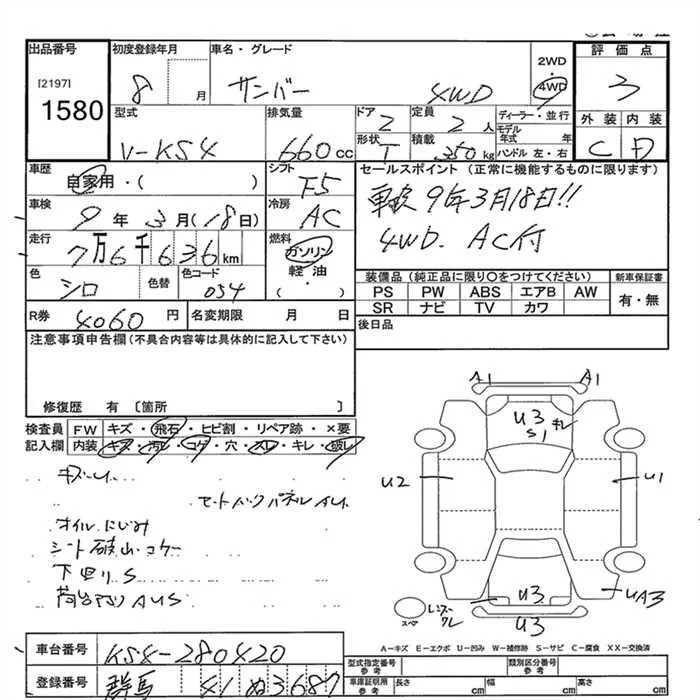 出品番号 初度登録年月 車名・グレード 2WD 評価点
[2197] 8 月 サンバー 4WD 4WD 3
1580 型式 排気量 ドア 定員 ディーラー・並行 外装 内装
V-KS4 660cc 2 2人 モデル年式 年 C D
形状 T 積載 350kg ハンドル 左・右
車歴 自家用・( ) シフト F5 セールスポイント(正常に機能するものに限ります)
車検 9年3月(18日) 冷房 AC 車検9年3月18日!!
走行 7万6千636km 燃料 ガソリン 4WD. AC付
軽油
・( )
色 シロ 色替 色コード 054 装備品(純正品に限り○をつけてください) 新車保証書
PS PW ABS エアB AW 有・無
SR ナビ TV カワ
R券 4060円 名変期限 月 日 後日品
注意事項申告欄(不具合内容等は具体的に記入して下さい)
修復歴 有 〔箇所 〕
検査員 FW キズ・飛石・ヒビ割・リペア跡・×要
記入欄 内装 キズ・汚レ・コゲ・穴・スレ・キレ・破レ
A1 A1
U3 キレ
S1
U2 U1
キズ・U
セットバックパネルAU1
オイルにじみ
シート破れ・コゲ
下回りS
荷台アオリAUS
U3 UA3
スペア レンズワレ U3
車台番号 KS4-280420
登録番号 群馬 41 ぬ 3687
A-キズ E-エクボ U-凹み W-補修跡 S-サビ C-腐食 XX-交換済
型式指定番号 参考 類別区分番号 参考
車庫証明用 参考 長さ cm 幅 cm 高さ cm